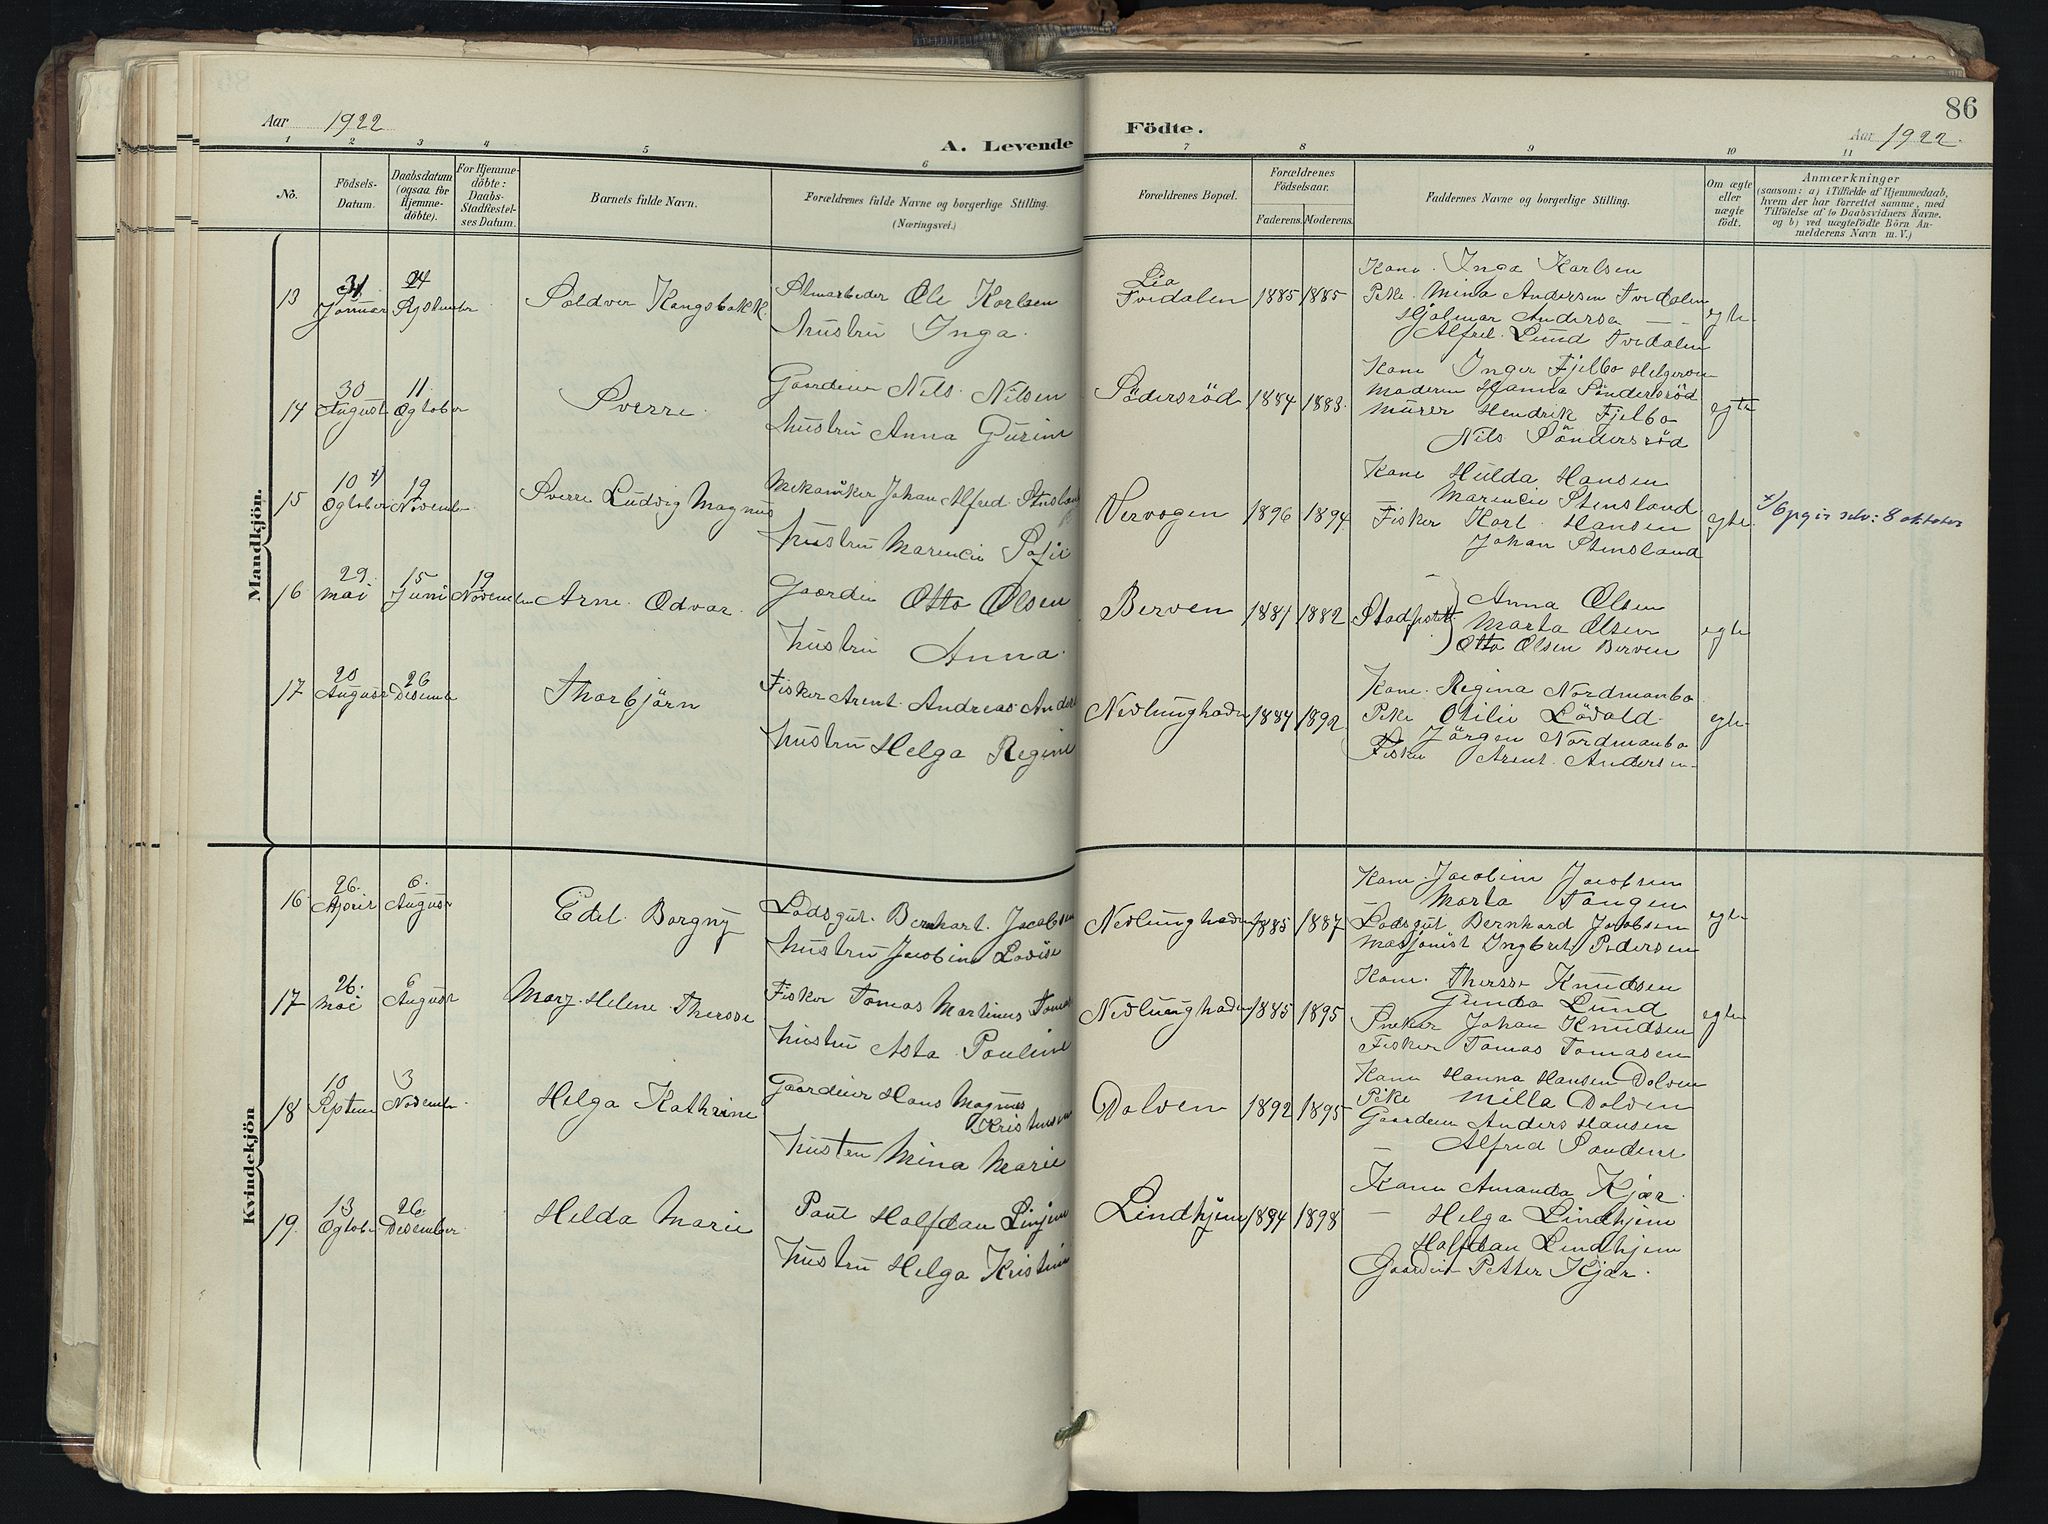 86
Aar 1922
A. Levende
Födte.
Aar 1922.
1 2 3 4 5 6 7 8 9 10 11
No.
Födsels-
Datum.
Daabsdatum
(ogsaa for
Hjemme-
döbte).
For Hjemme-
döbte:
Daabs-
Stadfæstel-
ses Datum.
Barnets fulde Navn.
Forældrenes fulde Navne og borgerlige Stilling.
(Næringsvei.)
Forældrenes Bopæl.
Forældrenes
Födselsaar.
Faderens. Moderens.
Faddernes Navne og borgerlige Stilling.
Om ægte
eller
uægte
födt.
Anmærkninger
(saasom: a) i Tilfælde af Hjemmedaab,
hvem der har forrettet samme, med
Tilföielse af to Daabsvidners Navne.
og b) ved uægtefödte Börn An-
melderens Navn m. V.)
Mandkjön.
13
31
Januar
24
September
Soldver Kongsbakk.
Ole Karlsen
Hustru Inga.
Lia
Tvedalen
1885 1885
Kone Inga Karlsen
Pike Mina Andersen Tvedalen
Hjalmar Andersen — —
Alfred Lund Tvedalen
egte
14
30
August
11
Ogtober
Sverre.
Gaardeier Nils Nilsen
Hustru Anna Gurine
Södersröd
1884 1883.
Kone Inger Fjelbo Helgeroen
Hanna Söndersröd
Murer Hendrik Fjelbo
Nils Söndersröd
egte
15
10 x)
Ogtober
19
November
Sverre Ludvig Magnus
Mekaniker Johan Alfred Stensland
Hustru Marencie Sofie
Nervogen
1896 1894
Kone Hulda Hansen
Marencie Stensland
Fisker Karl Hansen
Johan Stensland
egte
x) Opgir selv: 8 oktober
16
29
Mai
15
Juni
19
November
Arne Odvar.
Gaardeier Otto Olsen
Hustru Anna.
Berven
1881 1882
Stadfestet
Anna Olsen
Marta Olsen
Otto Olsen Berven
egte
17
20
August
26
Desember
Thorbjörn
Fisker Arent Andreas Anders
Hustru Helga Regine
Nevlunghavn
1884 1892
Kone Regina Nordmanbo
Pike Otilie Lövald
Jörgen Nordmanbo
Fisker Arent Andersen
egte
Kvindekjön
16
26.
April
6.
August
Edel Borgny
Lodsgut Bernhart Jacobsen
Hustru Jacobine Lovise
Nevlunghavn
1885 1887
Kone Jacobine Jacobsen
— Marta Tangen
Lodsgut Bernhard Jacobsen
Ingbret Pedersen
egte
17
26.
Mai
6
August
Marj Helene Therese
Fisker Tomas Martinus Tomas
Hustru Asta Pauline
Nevlunghavn
1885 1895
Kone Therese Knudsen
Gunda Lund
Johan Knudsen
Fisker Tomas Tomasen
egte
18
10
Septem
3
November
Helga Kathrine
Gaardeier Hans Magnus
Kristensen
Hustru Mina Marie
Dolven
1892 1895
Kone Hanna Hansen Dolven
Pike Milla Dolven
Gaardeier Anders Hansen
— Alfred
19.
13
Ogtober
26.
Desember
Helda Marie
Paul Halfdan Linjem
Hustru Helga Kristine
Lindhjem
1894 1898
Kone Amanda Kjær.
— Helga Lindhjem
Halfdan Lindhjem
Gaardeier Petter Kjær.